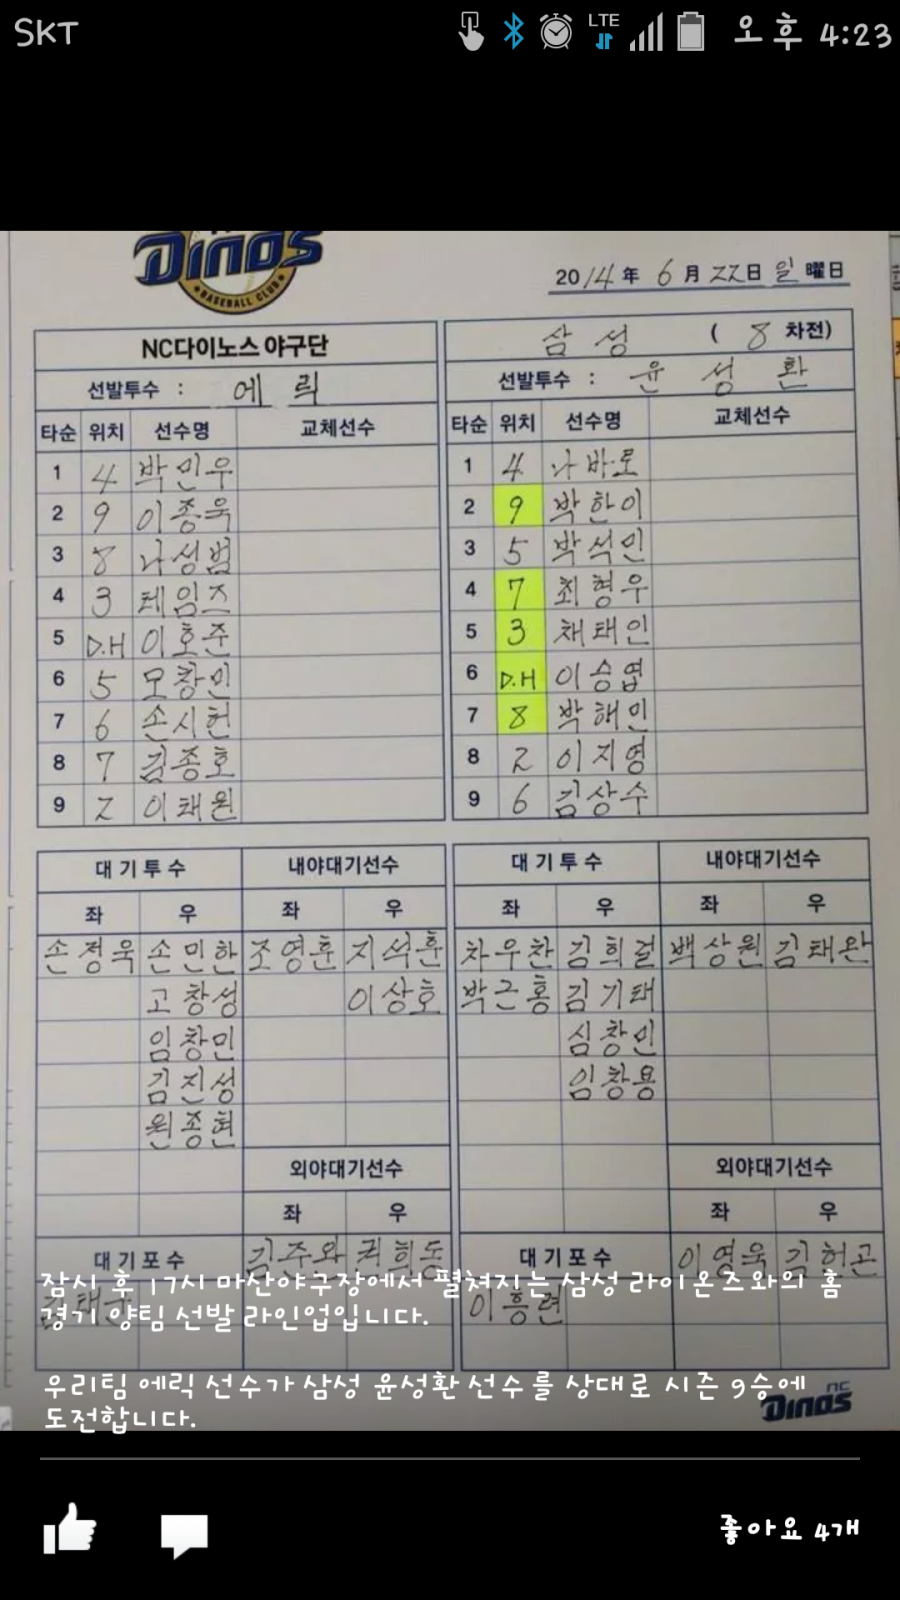 SKT LTE 오후 4:23
DINOS
BASEBALL CLUB
2014年 6月 22日 일曜日
NC다이노스 야구단
선발투수 : 에릭
타순 위치 선수명 교체선수
1 4 박민우
2 9 이종욱
3 8 나성범
4 3 테임즈
5 D.H 이호준
6 5 모창민
7 6 손시헌
8 7 김종호
9 2 이태원
삼성 ( 8 차전)
선발투수 : 윤성환
타순 위치 선수명 교체선수
1 4 나바로
2 9 박한이
3 5 박석민
4 7 최형우
5 3 채태인
6 D.H 이승엽
7 8 박해민
8 2 이지영
9 6 김상수
대기투수 내야대기선수
좌 우 좌 우
손정욱 손민한 조영훈 지석훈
고창성 이상호
임창민
김진성
원종현
외야대기선수
좌 우
대기포수 김준완 권희동
김태군
대기투수 내야대기선수
좌 우 좌 우
차우찬 김희걸 백상원 김태완
박근홍 김기태
심창민
임창용
외야대기선수
좌 우
대기포수 이영욱 김헌곤
이흥련
잠시 후 17시 마산야구장에서 펼쳐지는 삼성 라이온즈와의 홈
경기 양팀 선발 라인업입니다.
우리팀 에릭 선수가 삼성 윤성환 선수를 상대로 시즌 9승에
도전합니다.
NC
DINOS
좋아요 4개